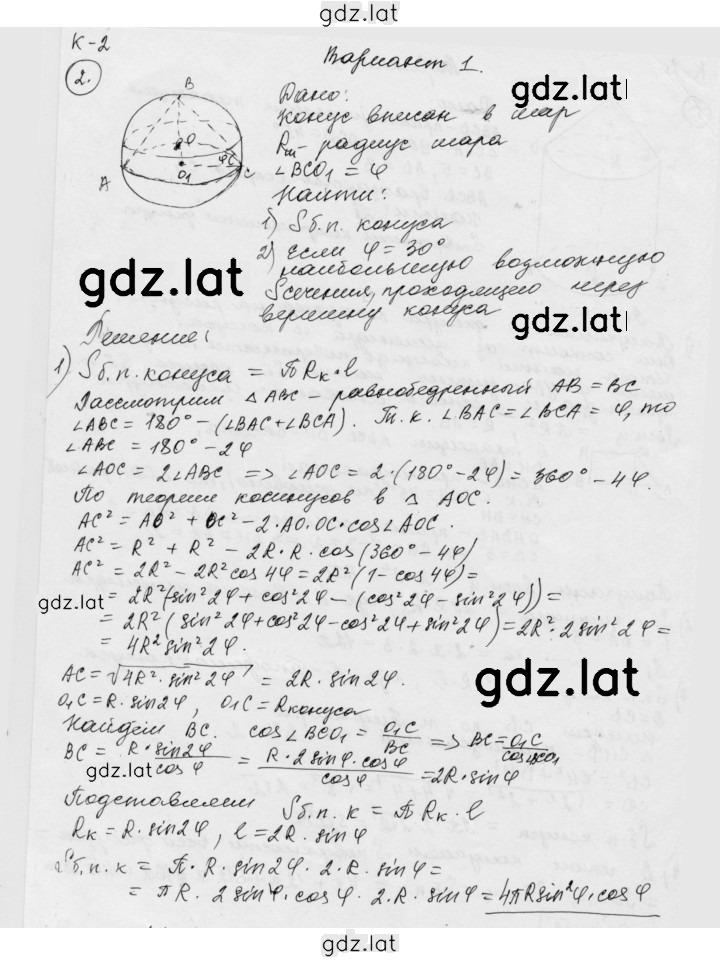 gdz.lat
К-2
Вариант 1.
2.
gdz.lat
Дано:
Конус вписан в шар
Rш - радиус шара
∠BCO₁ = φ
Найти:
1) Sб.п. конуса
2) Если φ = 30°
наибольшую возможную
Sсечения, проходящего через
вершину конуса
B
O
φ
C
O₁
A
gdz.lat
gdz.lat
Решение:
1) Sб.п. конуса = πRк·l
Рассмотрим △ABC - равнобедренный AB = BC
∠ABC = 180° - (∠BAC + ∠BCA). Т.к. ∠BAC = ∠BCA = φ, то
∠ABC = 180° - 2φ
∠AOC = 2∠ABC => ∠AOC = 2·(180° - 2φ) = 360° - 4φ.
По теореме косинусов в △ AOC.
AC² = AO² + OC² - 2·AO·OC·cos∠AOC.
AC² = R² + R² - 2R·R·cos(360° - 4φ)
AC² = 2R² - 2R²cos4φ = 2R²(1 - cos4φ) =
= 2R²(sin²2φ + cos²2φ - (cos²2φ - sin²2φ)) =
gdz.lat
= 2R²(sin²2φ + cos²2φ - cos²2φ + sin²2φ) = 2R²·2sin²2φ =
= 4R²sin²2φ.
AC = √4R²·sin²2φ = 2R·sin2φ.
gdz.lat
O₁C = R·sin2φ, O₁C = Rконуса
Найдем BC. cos∠BCO₁ = O₁C/BC => BC = O₁C/cos∠BCO₁
BC = R·sin2φ/cosφ = R·2sinφ·cosφ/cosφ = 2R·sinφ
gdz.lat
Подставляем Sб.п.к = πRк·l
Rк = R·sin2φ, l = 2R·sinφ
Sб.п.к = π·R·sin2φ·2·R·sinφ =
= πR·2sinφ·cosφ·2·R·sinφ = 4πRsin²φ·cosφ
gdz.lat